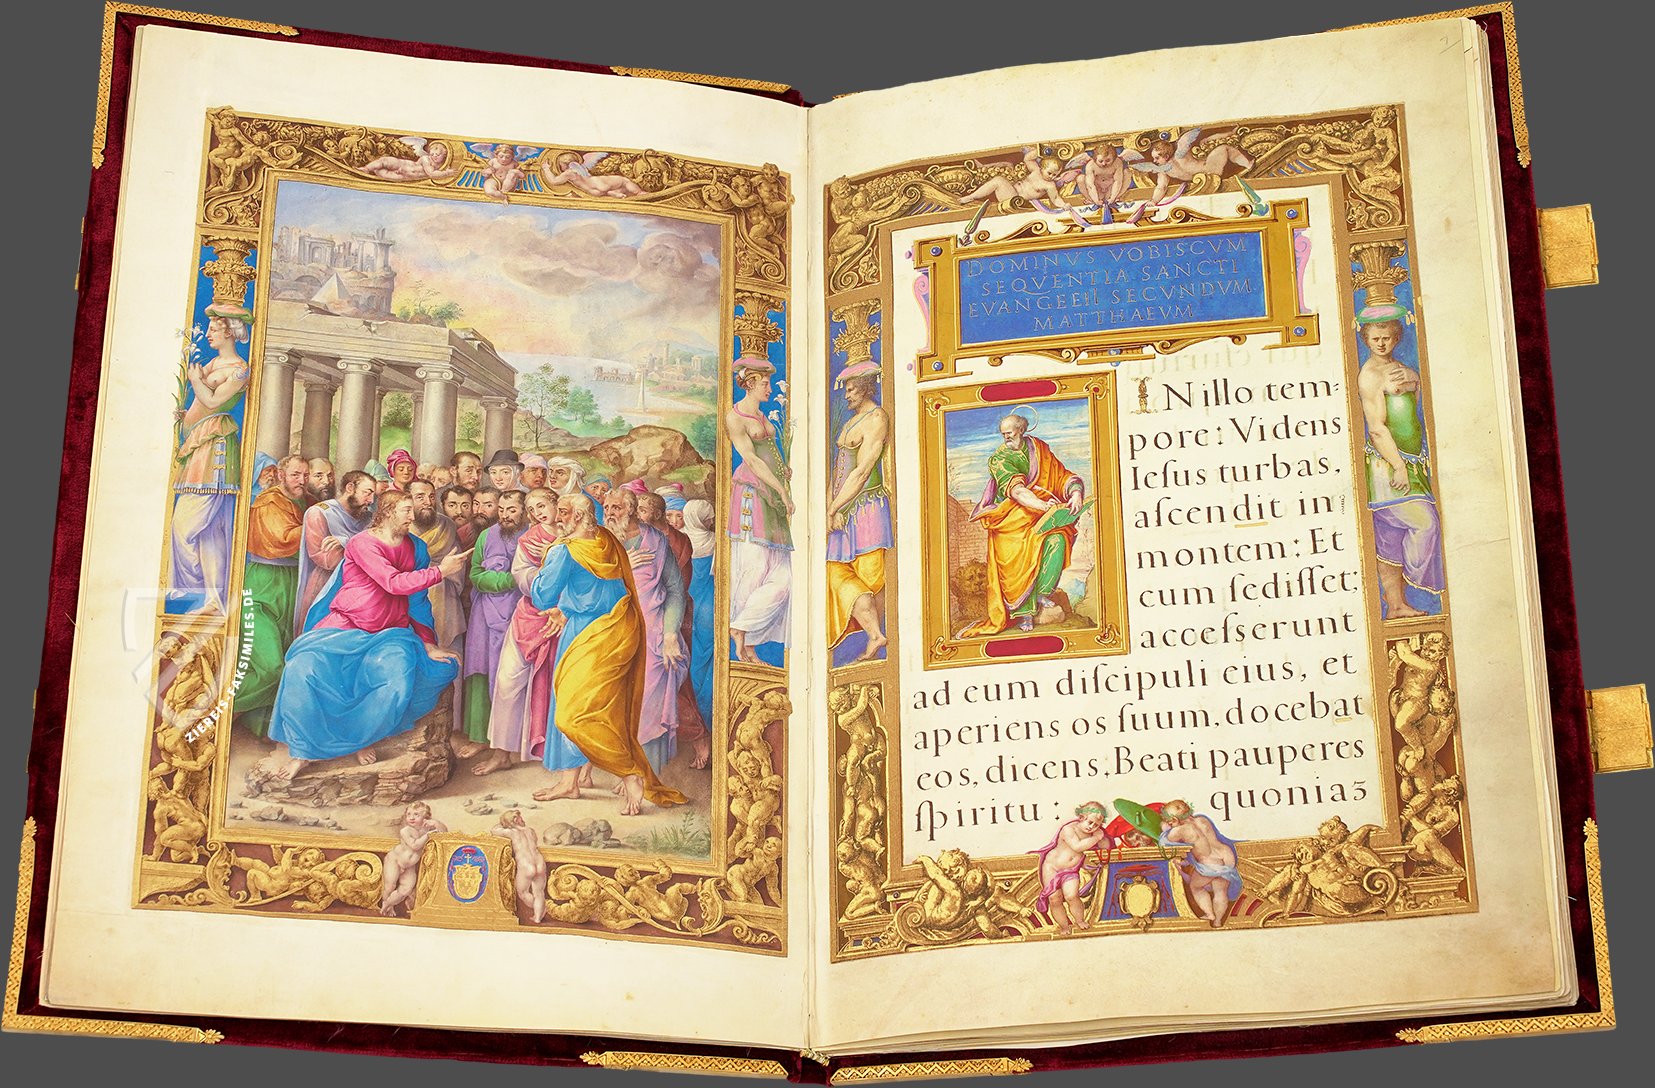 ZIEREIS-FAKSIMILES.DE
DOMINVS VOBISCVM
SEQVENTIA SANCTI
EVANGEEII SECVNDVM
MATTHAEVM
IN illo tem:
pore: Videns
Ieſus turbas,
aſcendit in
montem: Et
cum ſediſſet;
acceſserunt
ad eum diſcipuli eius, et
aperiens os ſuum, docebat
eos, dicens, Beati pauperes
ſpiritu: quoniaꝫ